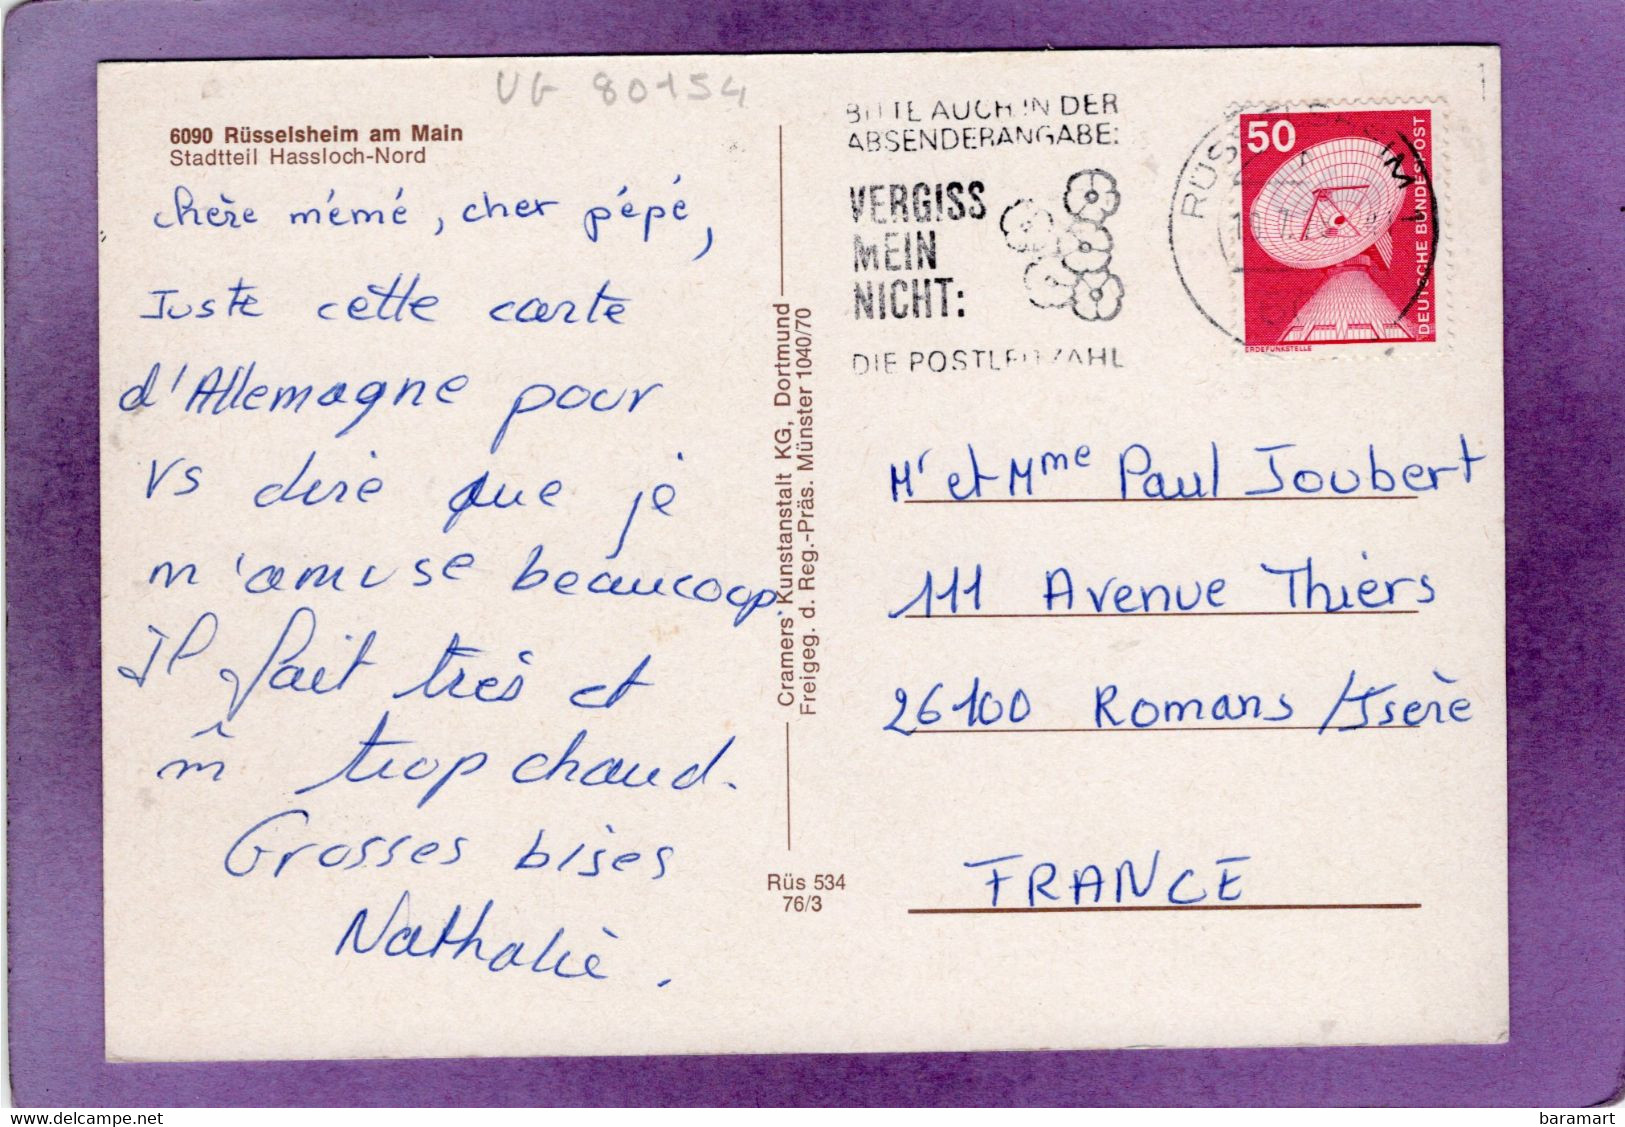 UG 80154
6090 Rüsselsheim am Main
Stadtteil Hassloch-Nord
chère mémé, cher pépé,
Juste cette carte
d'Allemagne pour
vs dire que je
m'amuse beaucoup.
Il fait très et
m̂ trop chaud.
Grosses bises
Nathalie.
Cramers Kunstanstalt KG, Dortmund
Freigeg. d. Reg.-Präs. Münster 1040/70
Rüs 534
76/3
BITTE AUCH IN DER
ABSENDERANGABE:
VERGISS
MEIN
NICHT:
DIE POSTLEITZAHL
RÜSSELSHEIM 1
50
DEUTSCHE BUNDESPOST
ERDEFUNKSTELLE
Mr et Mme Paul Joubert
111 Avenue Thiers
26100 Romans /Isère
FRANCE
delcampe.net
baramart